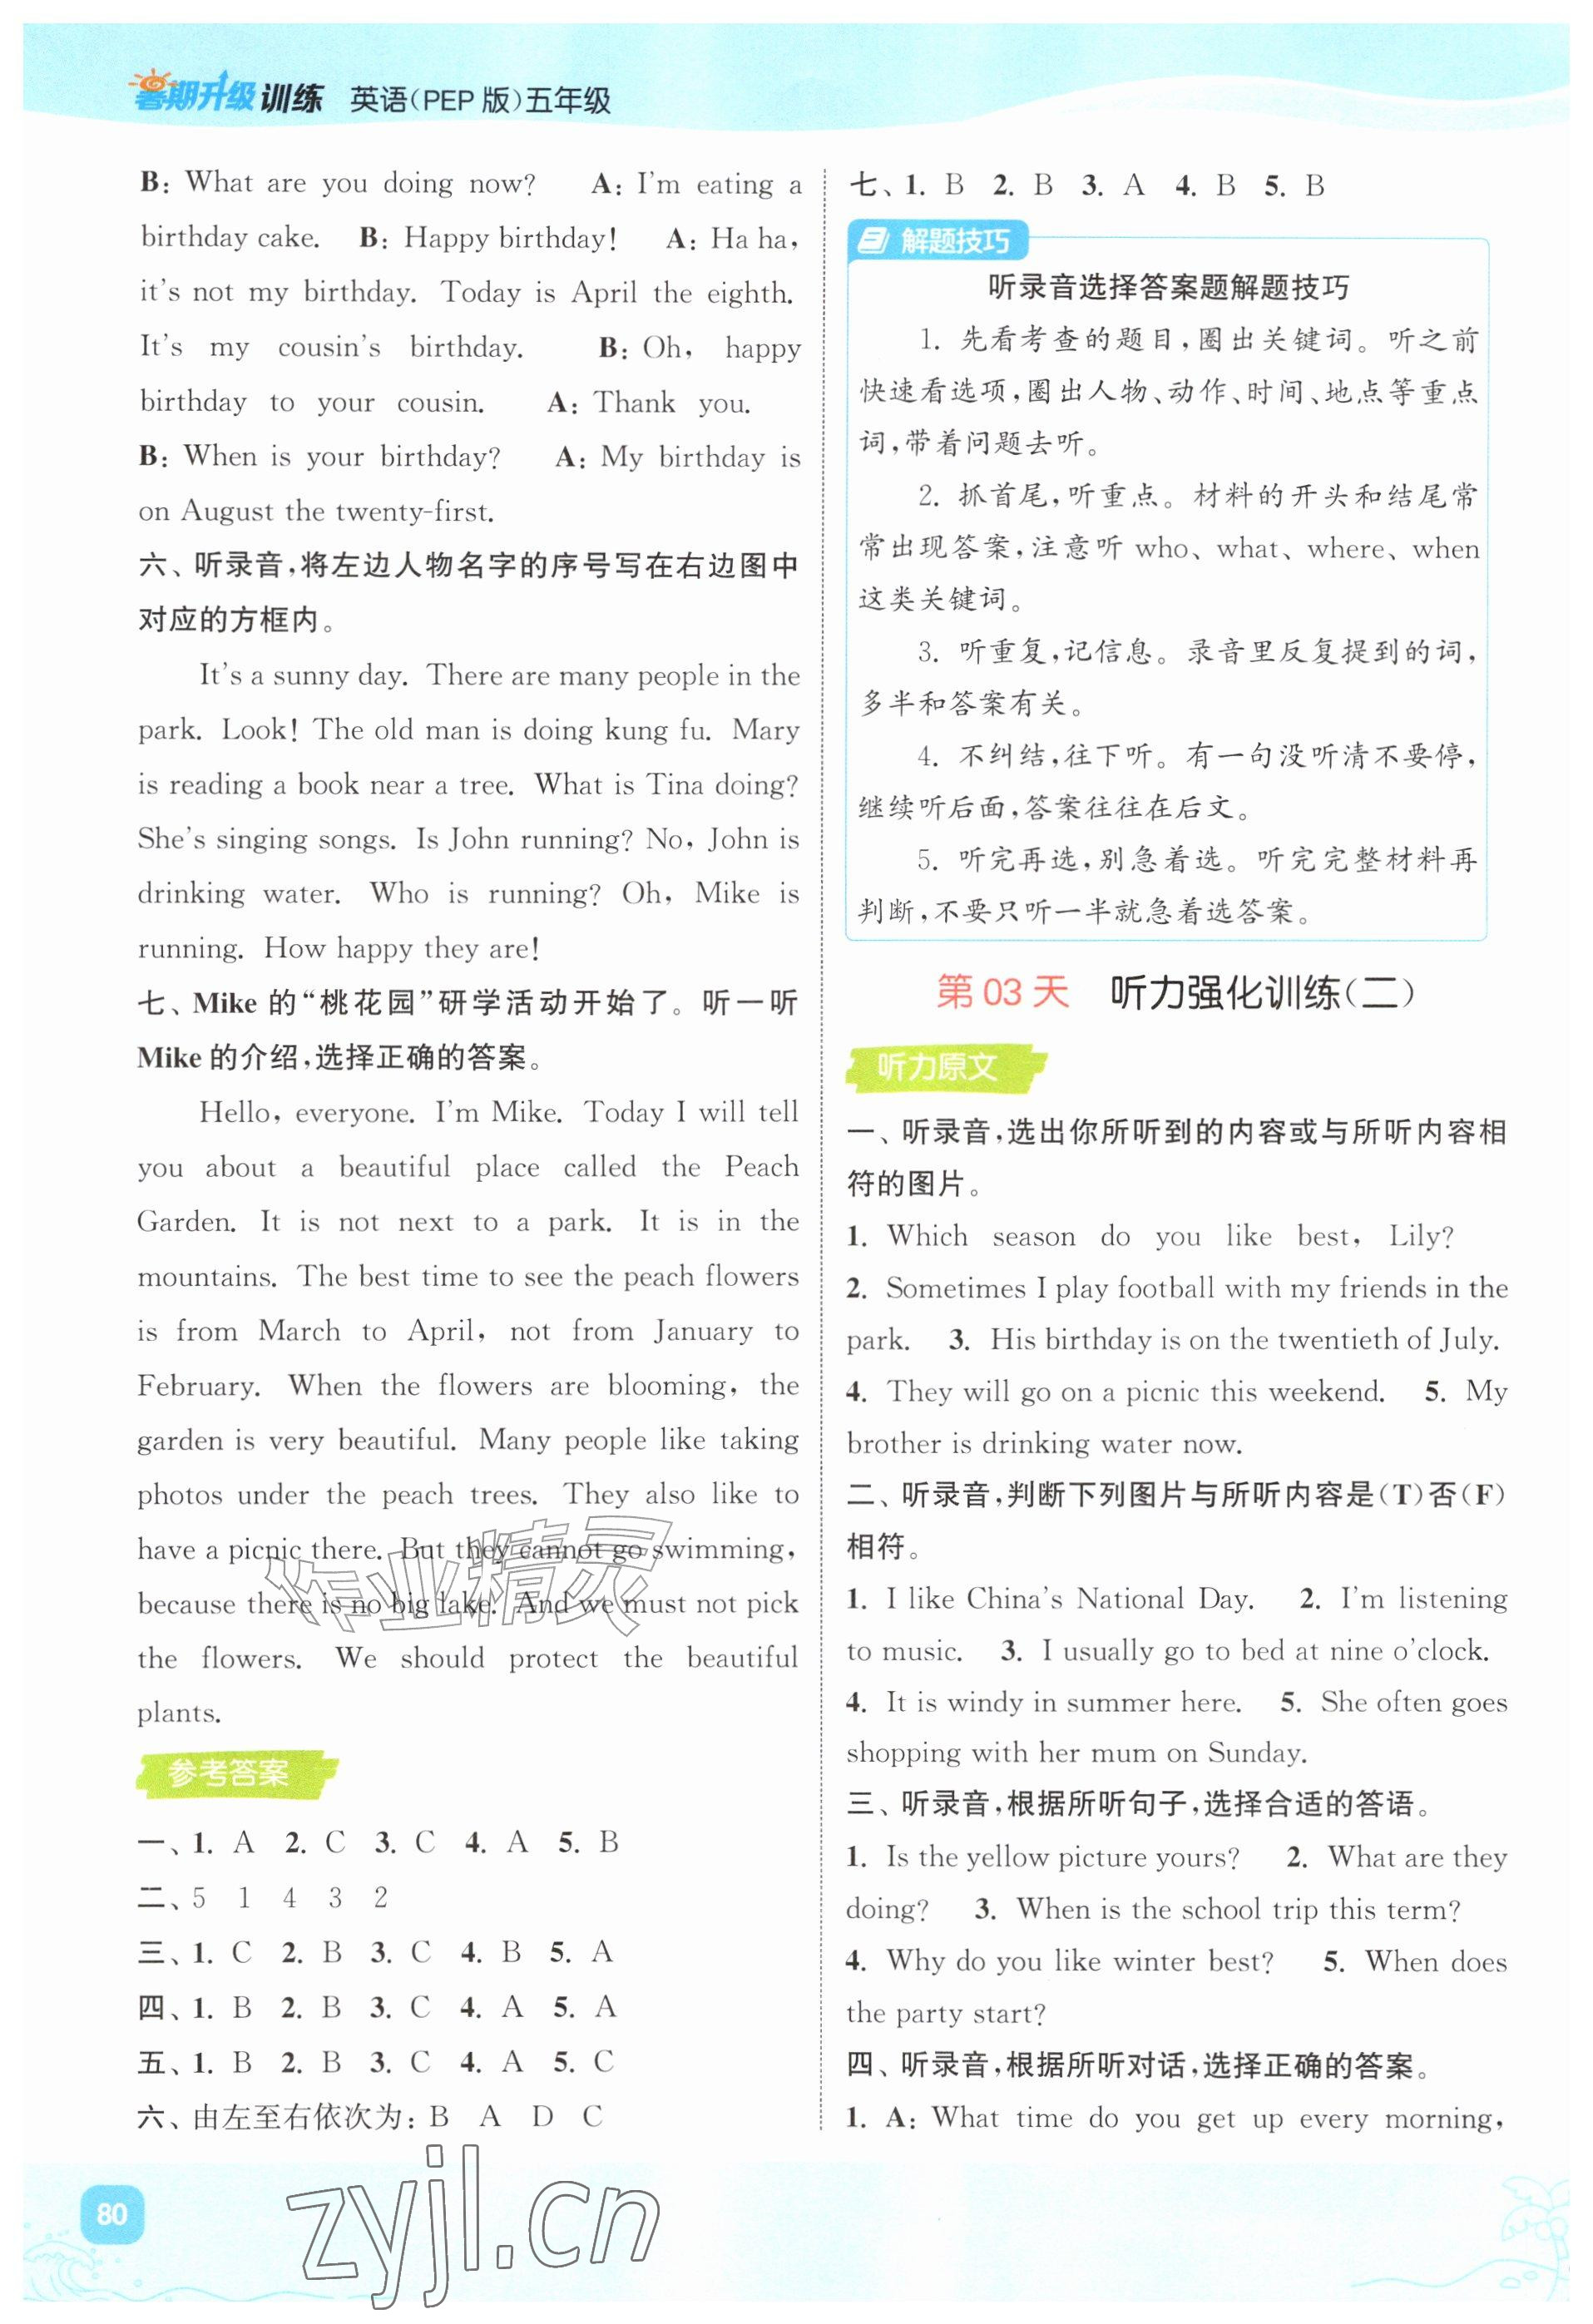 暑期升级训练 英语(PEP 版)五年级
B: What are you doing now? A: I'm eating a
birthday cake. B: Happy birthday! A: Ha ha,
it's not my birthday. Today is April the eighth.
It's my cousin's birthday. B: Oh, happy
birthday to your cousin. A: Thank you.
B: When is your birthday? A: My birthday is
on August the twenty-first.
六、听录音,将左边人物名字的序号写在右边图中
对应的方框内。
It's a sunny day. There are many people in the
park. Look! The old man is doing kung fu. Mary
is reading a book near a tree. What is Tina doing?
She's singing songs. Is John running? No, John is
drinking water. Who is running? Oh, Mike is
running. How happy they are!
七、Mike 的“桃花园”研学活动开始了。听一听
Mike 的介绍,选择正确的答案。
Hello, everyone. I'm Mike. Today I will tell
you about a beautiful place called the Peach
Garden. It is not next to a park. It is in the
mountains. The best time to see the peach flowers
is from March to April, not from January to
February. When the flowers are blooming, the
garden is very beautiful. Many people like taking
photos under the peach trees. They also like to
have a picnic there. But they cannot go swimming,
because there is no big lake. And we must not pick
the flowers. We should protect the beautiful
plants.
参考答案
一、1. A 2. C 3. C 4. A 5. B
二、5 1 4 3 2
三、1. C 2. B 3. C 4. B 5. A
四、1. B 2. B 3. C 4. A 5. A
五、1. B 2. B 3. C 4. A 5. C
六、由左至右依次为: B A D C
七、1. B 2. B 3. A 4. B 5. B
解题技巧
听录音选择答案题解题技巧
1. 先看考查的题目,圈出关键词。听之前
快速看选项,圈出人物、动作、时间、地点等重点
词,带着问题去听。
2. 抓首尾,听重点。材料的开头和结尾常
常出现答案,注意听 who、what、where、when
这类关键词。
3. 听重复,记信息。录音里反复提到的词,
多半和答案有关。
4. 不纠结,往下听。有一句没听清不要停,
继续听后面,答案往往在后文。
5. 听完再选,别急着选。听完完整材料再
判断,不要只听一半就急着选答案。
第 03 天 听力强化训练(二)
听力原文
一、听录音,选出你所听到的内容或与所听内容相
符的图片。
1. Which season do you like best, Lily?
2. Sometimes I play football with my friends in the
park. 3. His birthday is on the twentieth of July.
4. They will go on a picnic this weekend. 5. My
brother is drinking water now.
二、听录音,判断下列图片与所听内容是(T)否(F)
相符。
1. I like China's National Day. 2. I'm listening
to music. 3. I usually go to bed at nine o'clock.
4. It is windy in summer here. 5. She often goes
shopping with her mum on Sunday.
三、听录音,根据所听句子,选择合适的答语。
1. Is the yellow picture yours? 2. What are they
doing? 3. When is the school trip this term?
4. Why do you like winter best? 5. When does
the party start?
四、听录音,根据所听对话,选择正确的答案。
1. A: What time do you get up every morning,
作业精灵
zyjl.cn
80